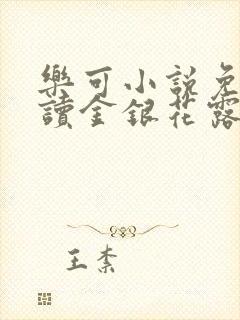 樂可小說免
讀金銀花露
王素